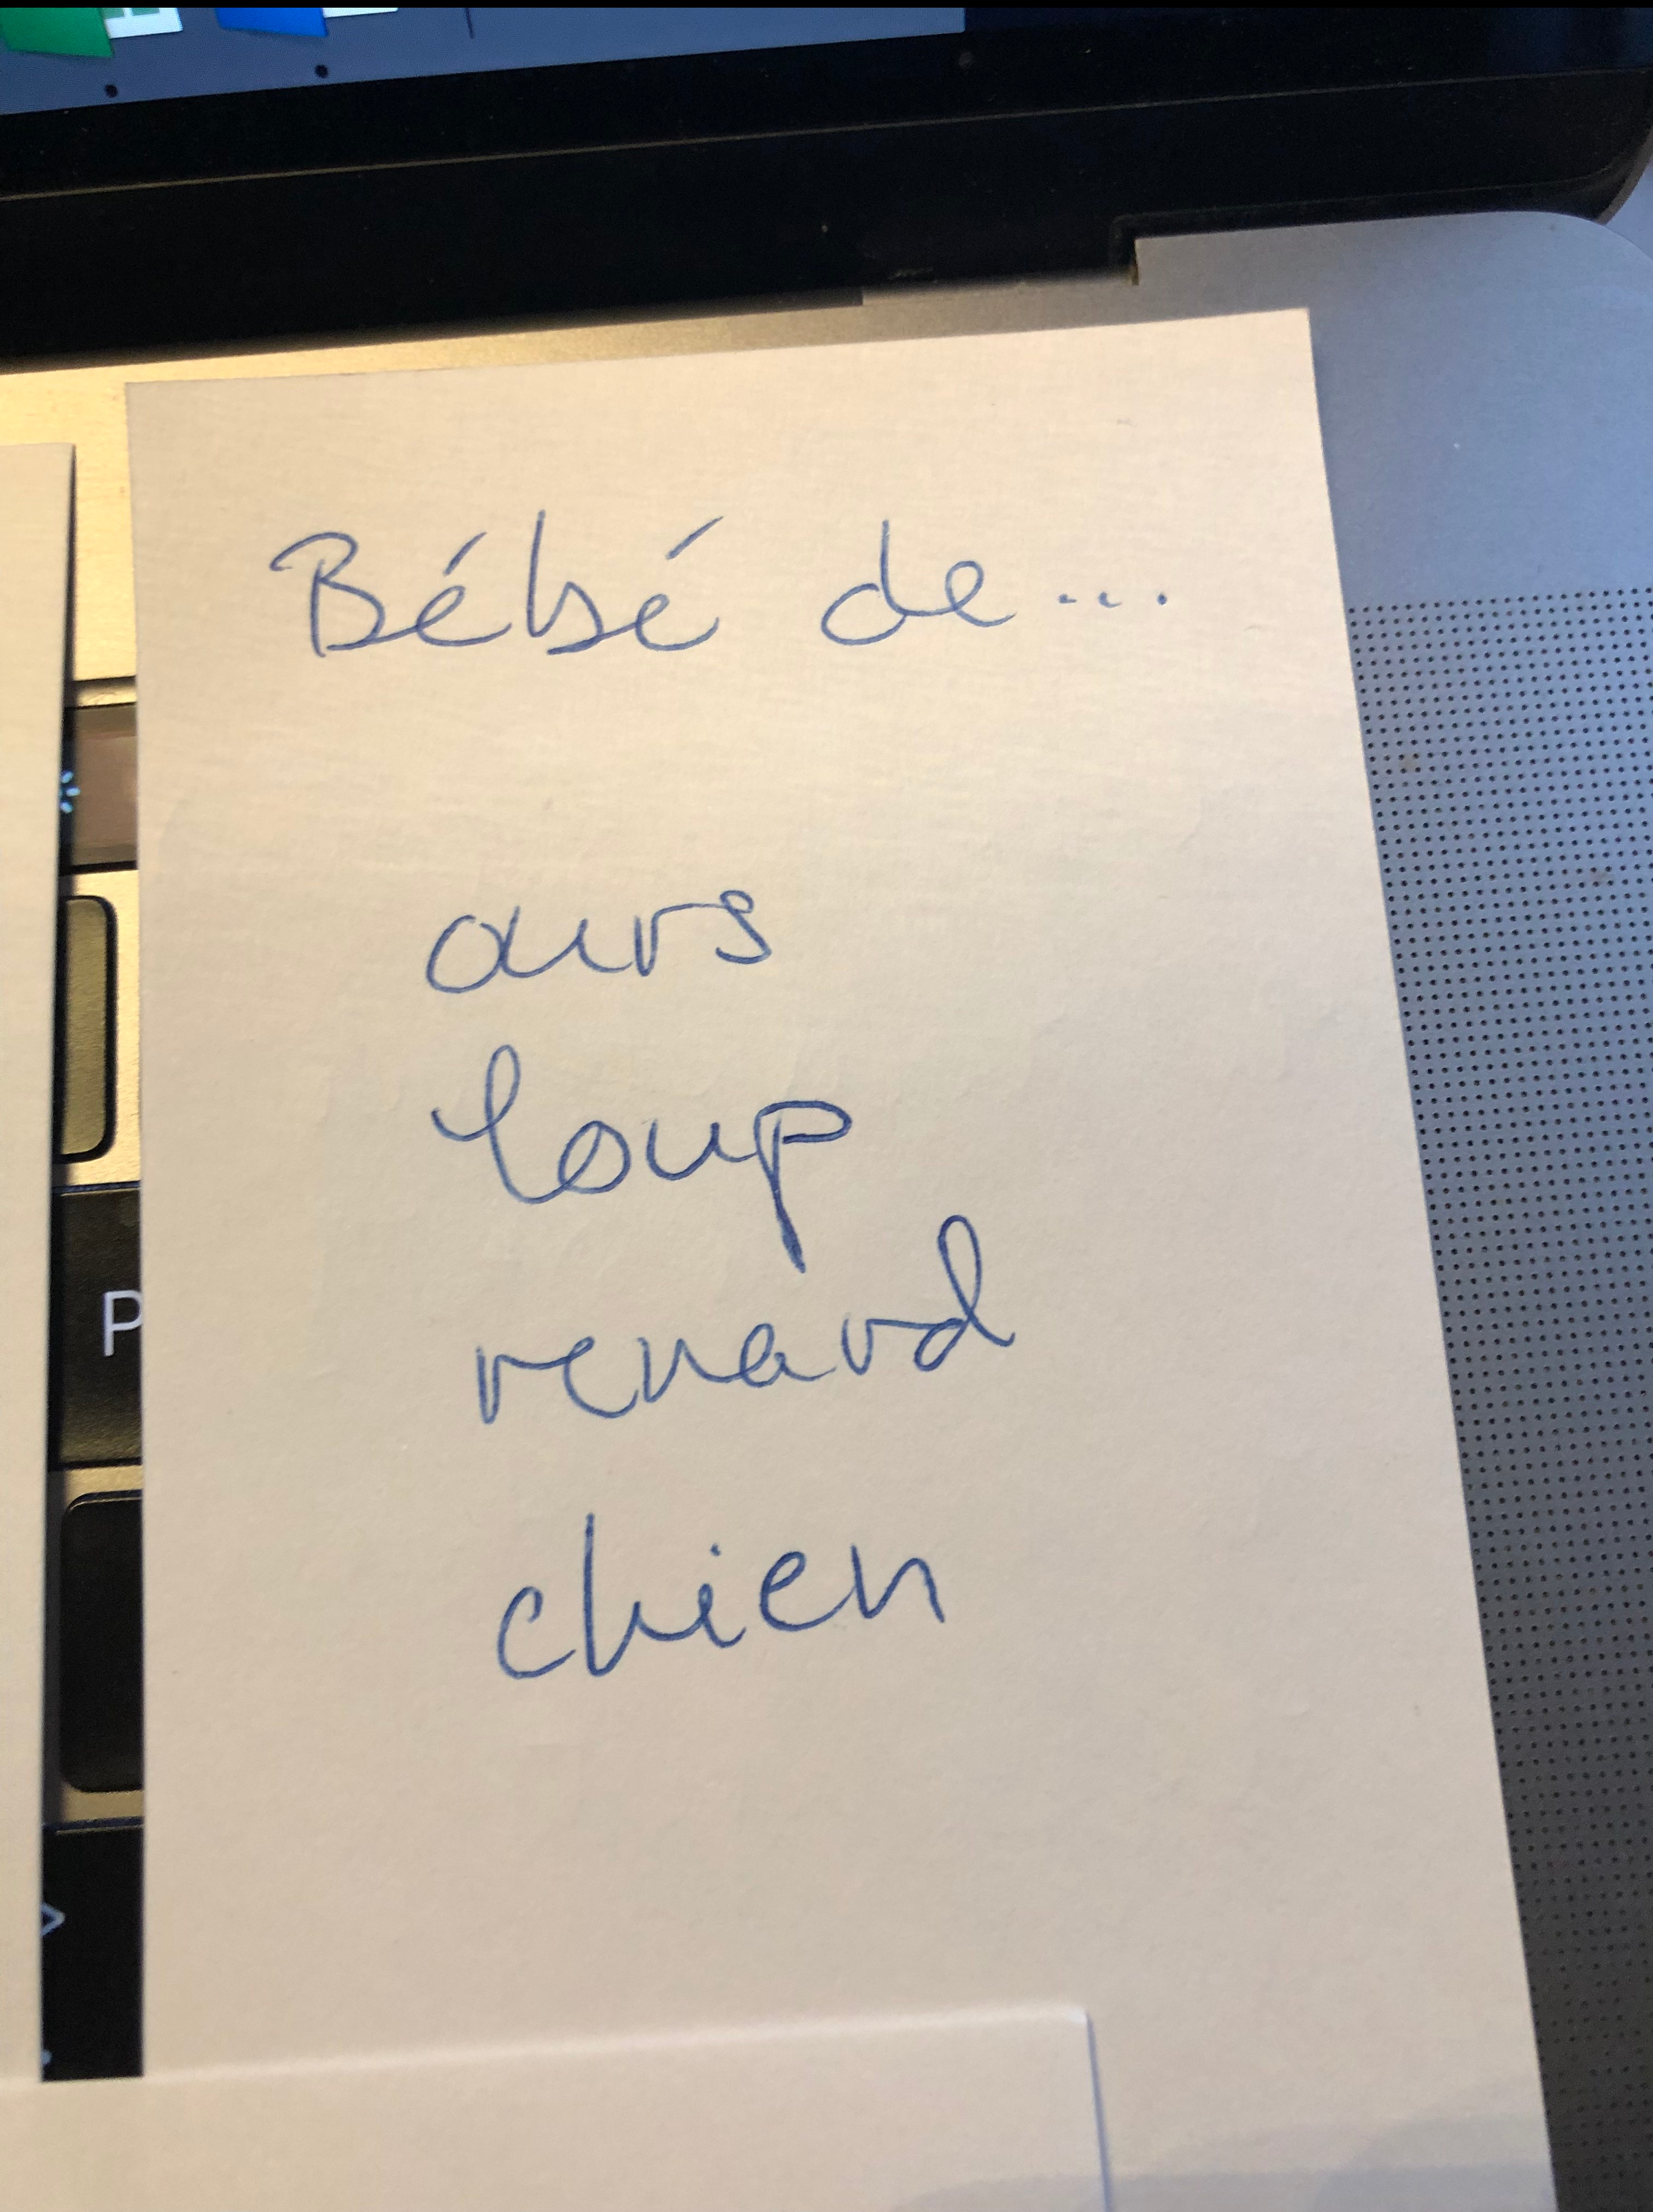 Bébé de...
ours
loup
renard
chien
P